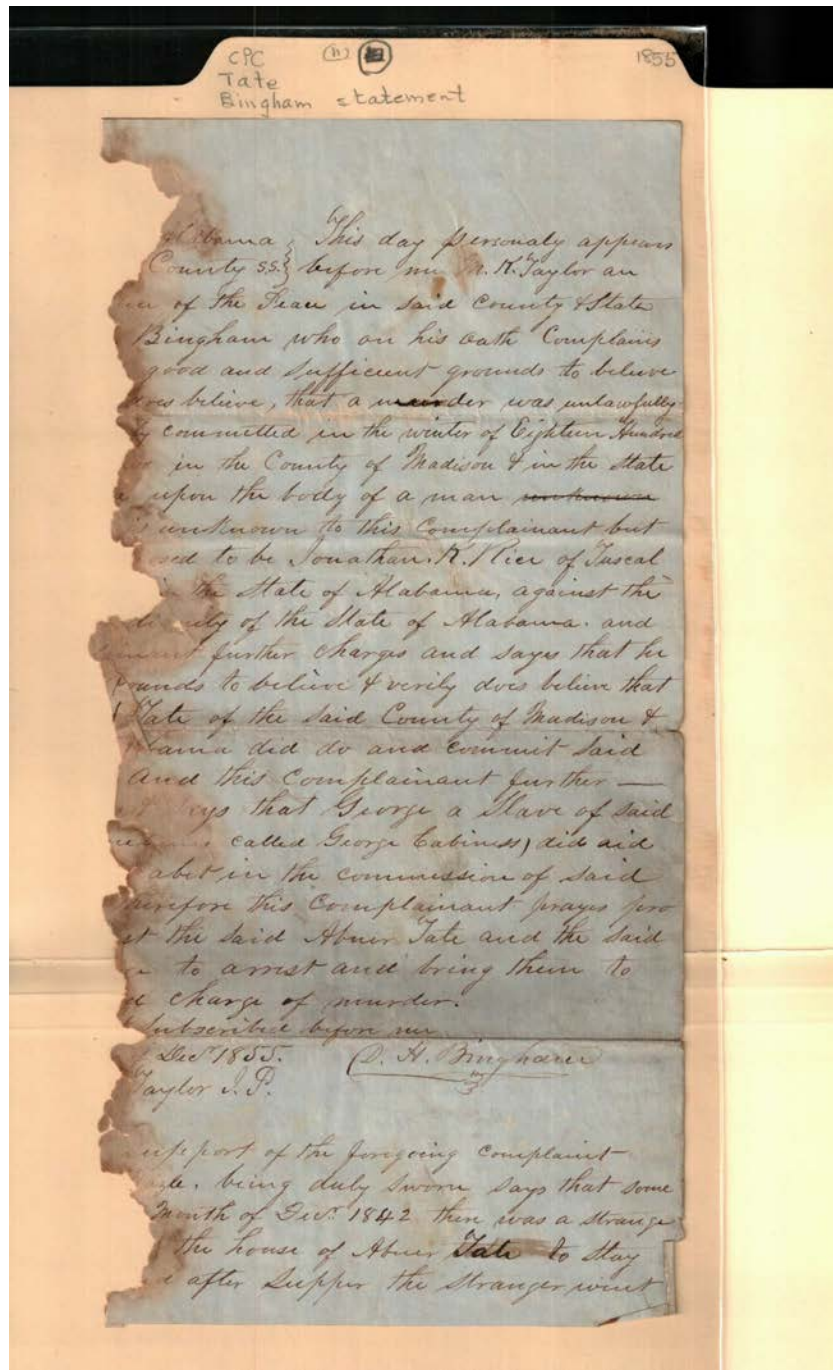 CPC (11)
1855
Tate
Bingham statement
labama } This day personaly appears
County S.S. } before me M. K. Taylor an
of the Peace in said County & State
Bingham who on his oath Complains
good and sufficient grounds to believe
does believe, that a murder was unlawfully
committed in the winter of Eighteen Hundred
in the County of Madison & in the State
upon the body of a man unknown
is unknown to this Complainant but
osed to be Jonathan. K. Rice of Tuscal
in the State of Alabama, against the
of the State of Alabama. and
inant further charges and says that he
rounds to believe & verily does believe that
Tate of the said County of Madison &
bama did do and commit said
And this complainant further —
says that George a Slave of said
called George Cabiness) did aid
abet in the commission of said
herefore this Complainant prayes pro
st the said Abner Tate and the said
to arrest and bring them to
charge of murder.
Subscribed before me
Decr 1855. D. H. Bingham
Taylor J. P.
support of the foregoing complaint
being duly sworn says that some
Month of Decr 1842 there was a strange
the house of Abner Tate to stay
after supper the stranger went